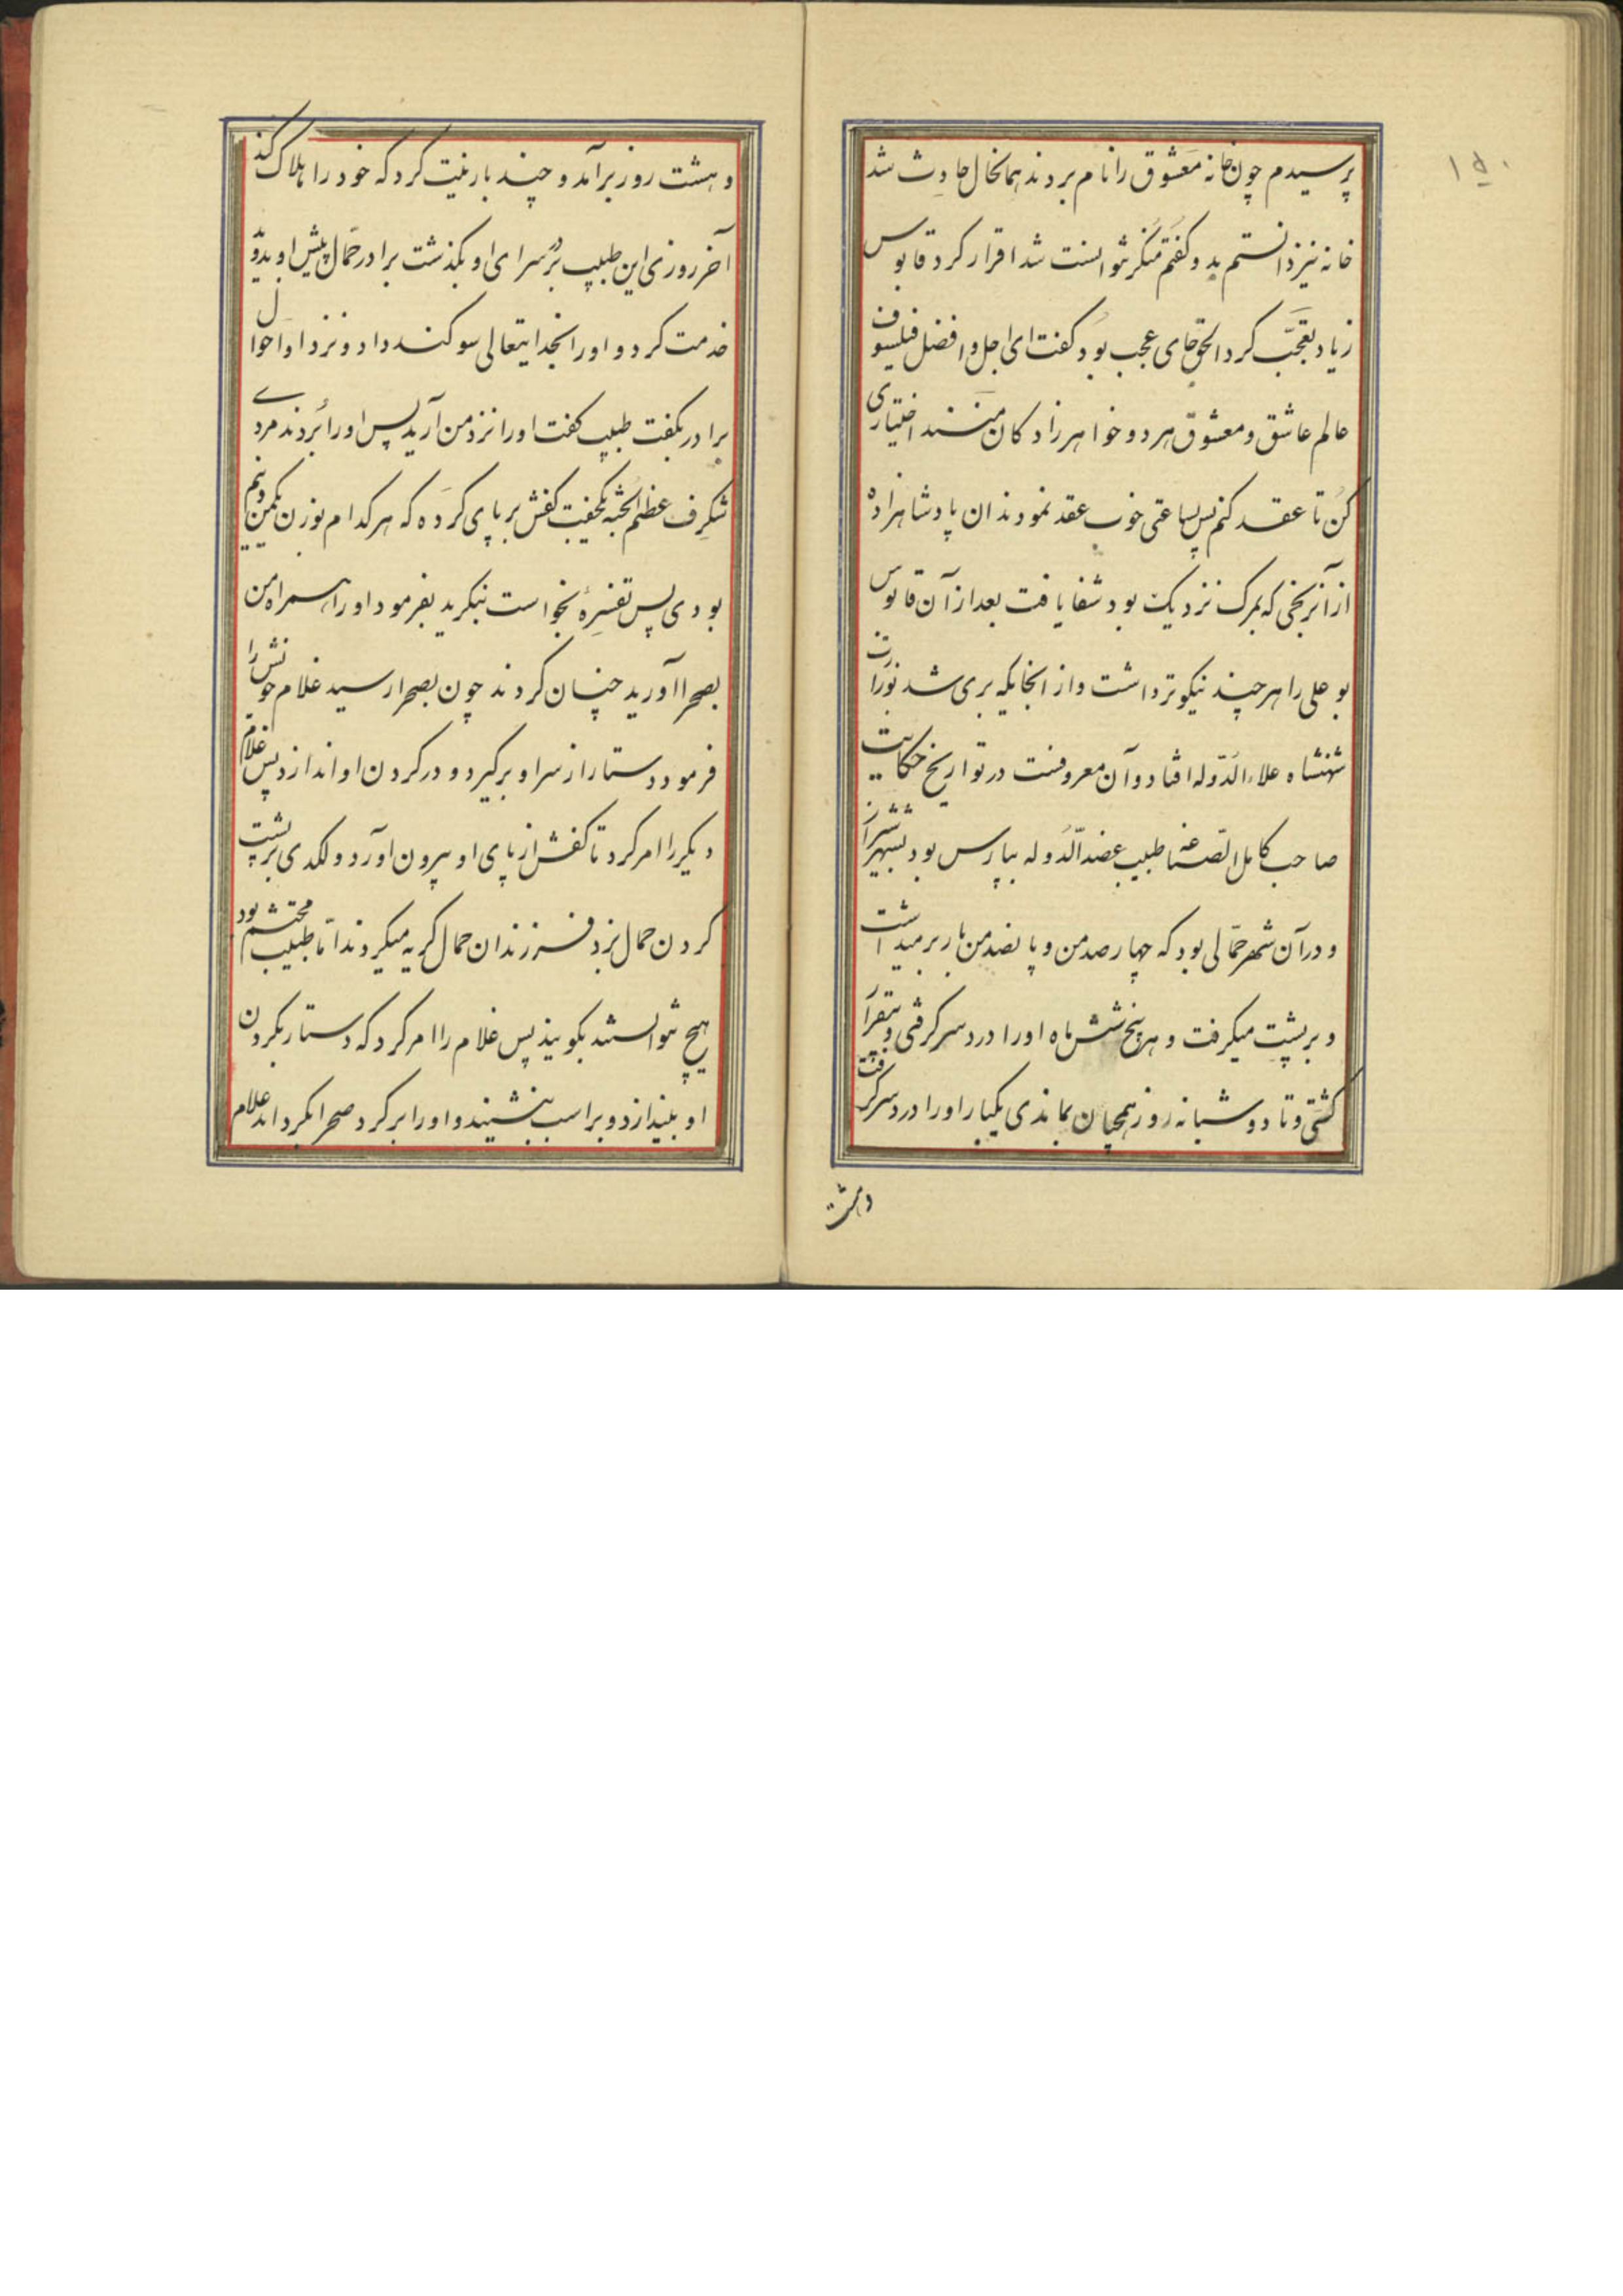 ۱۵۰
پرسیدم چون خانه معشوق را نام بردند همانحال حادث شد
خانه نیز دانستم بدو گفتم منکر نتوانست شد اقرار کرد قابوس
زیاد تعجّب کرد الحق جای عجب بود گفت ای اجل و افضل فیلسوف
عالم عاشق و معشوق هر دو خواهرزادکان منند اختیاری
کن تا عقد کنم پس بساعتی خوب عقد نمودند ان پادشاهزاده
از آنرنجی که بمرک نزدیک بود شفا یافت بعد از آن قابوس
بوعلی را هر چند نیکوتر داشت و از انجایکه بری شد بوزارت
شهنشاه علاءالدّوله افتاد و آن معروفست در تواریخ حکایت
صاحب کامل الصناعه طبیب عضدالدّوله بپارس بود بشهر شیراز
و در آن شهر حمّالی بود که چهار صد من و پانصد من بار برمیداشت
و بر پشت میکرفت و هر پنج شش ماه او را درد سر کرفتی و بیقرار
کشتی و تا دو شبانه روز همچنان بماندی یکبار او را درد سر کرفت
وهشت
و هشت روز برآمد و چند بار نیت کرد که خود را هلاک کند
آخر روزی این طبیب بر در سرای او بکذشت برادر حمّال پیش او بدوید
خدمت کرد و او را بخدایتعالی سوکند داد و نزد او احوال
برادر بکفت طبیب کفت او را نزد من آرید پس او را بردند مردے
شکرف عظیم الجثه یکجفت کفش بر پای کرده که هر کدام بوزن یکمن و نیم
بودی پس تفسره بخواست بنکرید بفرمود او را همراه من
بصحرا آورید چنان کردند چون بصحرا رسید غلام خویش را
فرمود دستار از سر او برکیرد و در کردن او اندازد پس غلام
دیکر را امر کرد تا کفش از پای او بیرون آورد و لکدی بر پشت
کردن حمال بزد فرزندان حمال کریه میکردند امّا طبیب محتشم بود
هیچ نتوانستند بکویند پس غلام را امر کرد که دستار بکردن
او بیندازد و بر اسب بنشیند و او را بر کرد صحرا بکرداند غلام